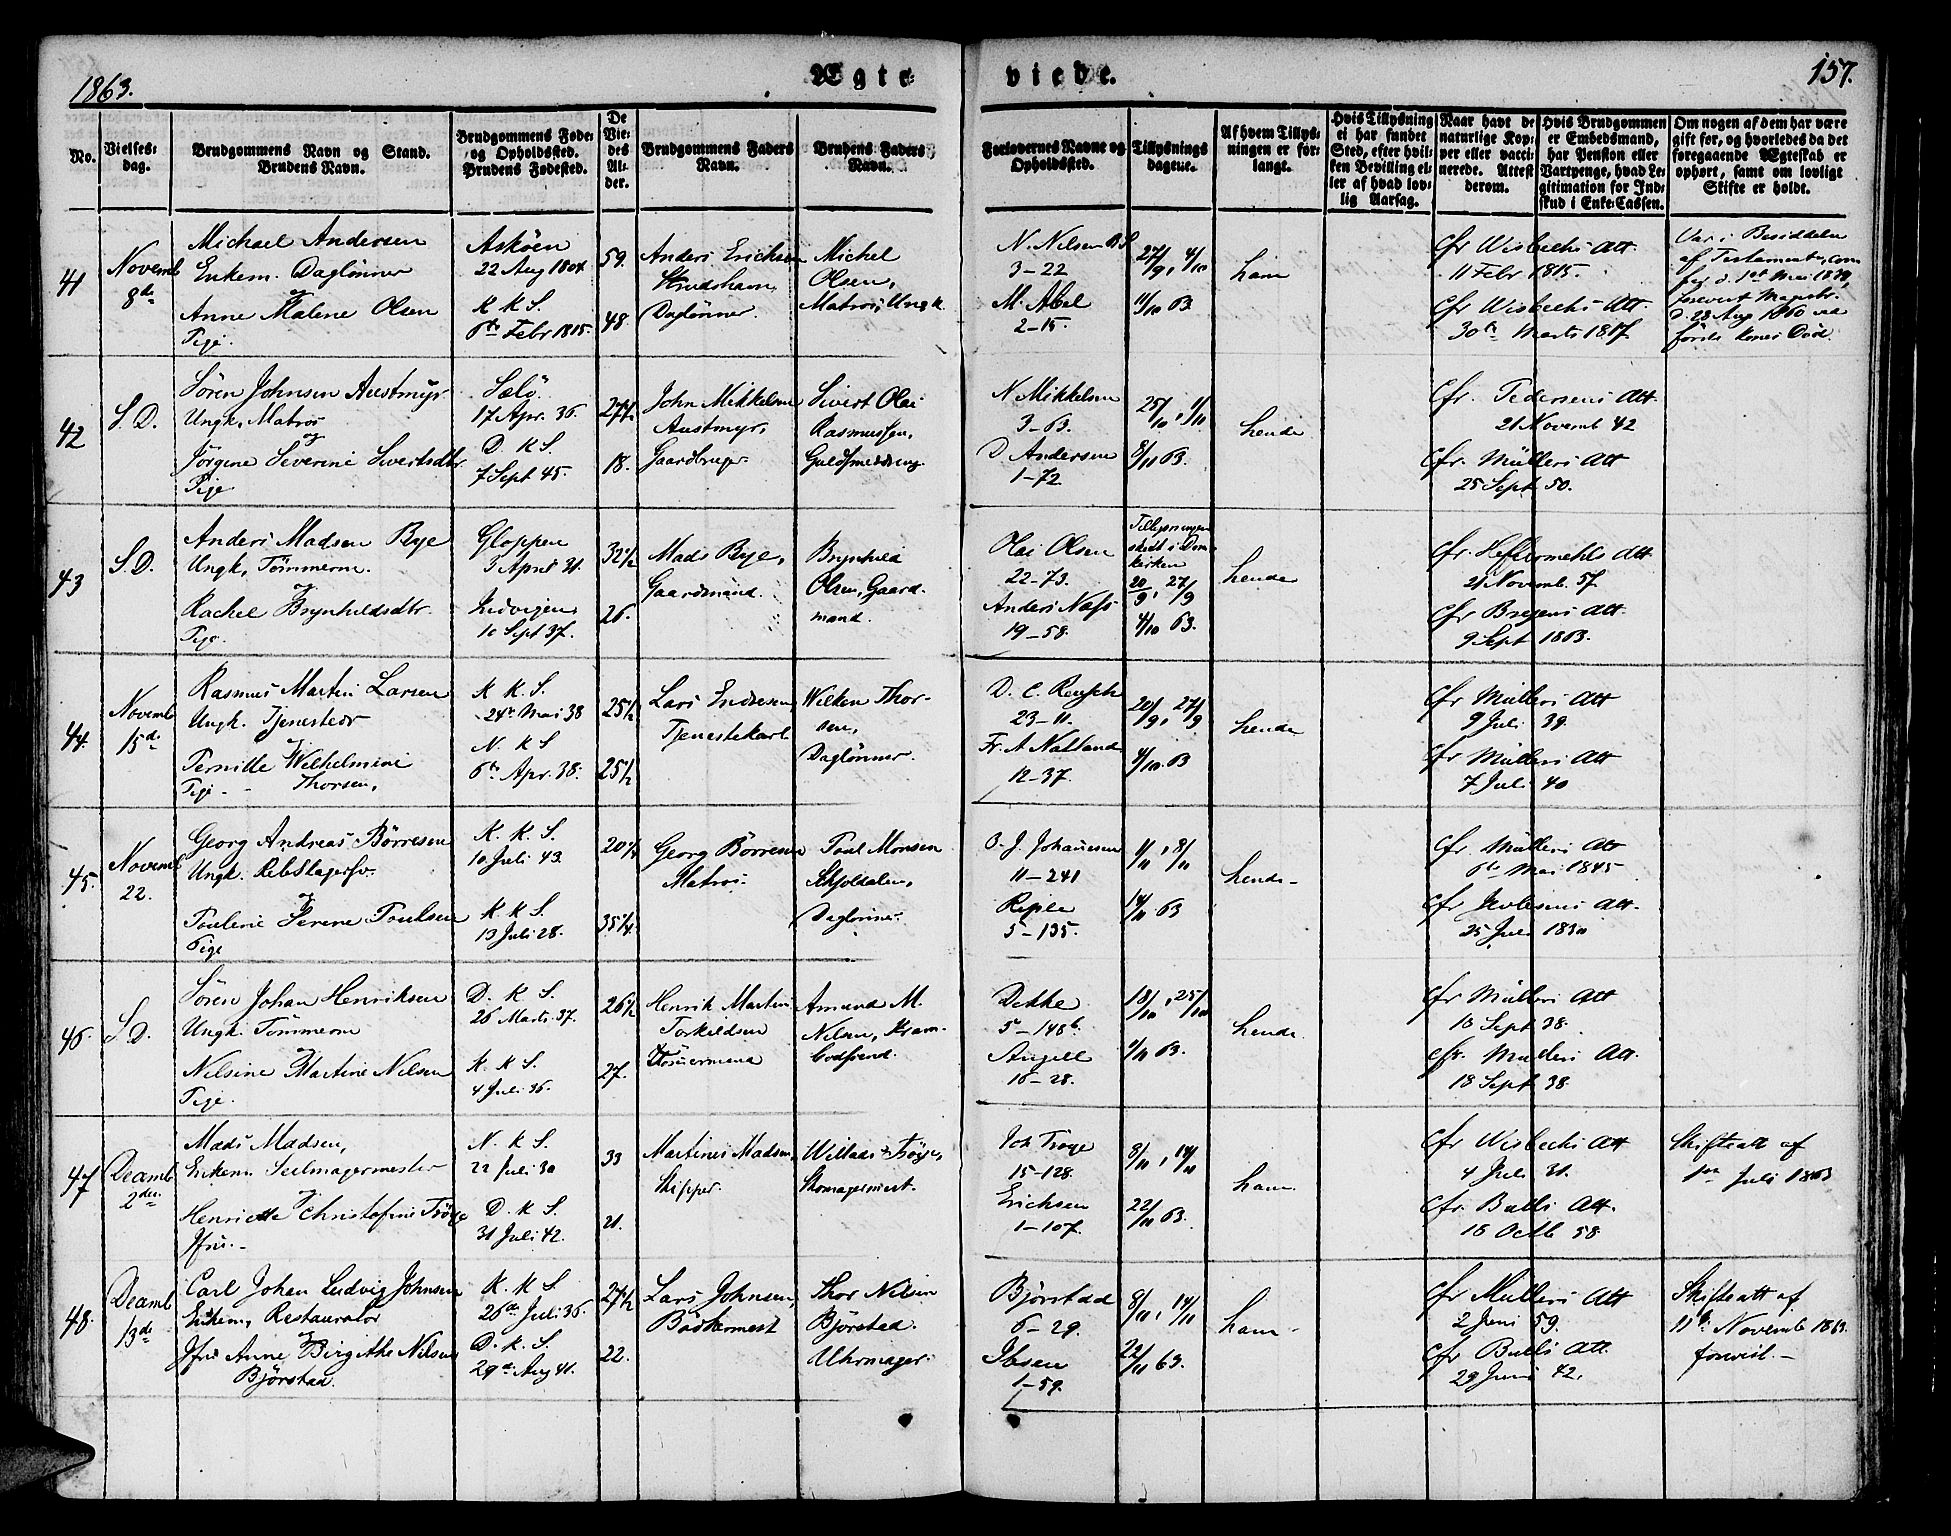 1863.
Ægte-
viede.
157.
No.
Vielses-
dag.
Brudgommens Navn og Stand.
Brudens Navn.
Brudgommens Føde-
og Opholdssted.
Brudens Fødested.
De
Vie-
des
Al-
der.
Brudgommens Faders
Navn.
Brudens Faders
Navn.
Forlovernes Navne og
Opholdssted.
Tillysnings
dagene.
Af hvem Tillys-
ningen er for-
langt.
Hvis Tillysning
ei har fundet
Sted, efter hvil-
ken Bevilling el-
ler af hvad lov-
lig Aarsag.
Naar havt de
naturlige Kop-
per eller vacci-
nerede. Attest
derom.
Hvis Brudgommen
er Embedsmand,
har Pension eller
Vartpenge, hvad Le-
gitimation for Ind-
skud i Enke-Cassen.
Om nogen af dem har være
gift før, og hvorledes da det
foregaaende Ægteskab er
ophørt, samt om lovligt
Skifte er holdt.
41
Novemb
8de
Michael Andersen
Enkem. Daglønner
og
Anne Malene Olsen
Pige.
Askøen
22 Aug 1804
K K S.
6te Febr 1815.
59.
48.
Anders Ericksen
Daglønner.
Michel
Olsen,
Matros, Ungk.
N. Nilsen
3-22
M. Abel
2-15.
27/9, 4/10
11/10 63
ham
Cfr Wisbechs Att.
11 Febr 1815.
Cfr Wisbechs Att.
30te Marts 1817.
Var i Besiddelse
af Testament, con
d. 1st Mai 1839,
d. 28 Aug 1860 ved
første Kones Død.
42
S. D.
Søren Johnsen Austmyr
Ungk, Matros
og
Jørgine Severine Sivertsdtr
Pige.
Selø
17 Apr. 36.
D K S.
7 Sept 45.
27½
18.
John Mikkelsen
Austmyr,
Gaardbruger.
Sivert Olai
Rasmussen,
N Mikkelsen
3-63.
D Andersen
1-72.
25/10, 1/11
8/11 63.
hende
Cfr. Pedersens Att.
21 Novemb 42
Cfr. Müllers Att
25 Sept 50.
43
S. D.
Anders Madsen Bye
Ungk, Tømmerm.
og
Rachel Brynhildsdtr.
Pige.
Gloppen
5 April 31.
10 Sept 37.
32½
26.
Mads Bye,
Gaardmand.
Brynhild
Olsen, Gaard-
mand.
Olai Olsen
22-73.
Anders Næss
19-58.
Tillysningen
skedt i Dom
kirken
20/9, 27/9
4/10 63.
hende
Cfr. Heftermehls Att
21 Novemb. 57.
Cfr Att.
9 Sept 1863.
44.
Novemb
15de
Rasmus Martin Larsen
Ungk. Tjenestedr
og
Pernille Wilhelmine
Pige - - Thorsen,
K K. S.
24de Mai 38
N. K S
6te Apr. 38.
25½
25½
Lars Endresen
Tjenestekarl
Wilken Thor-
sen,
Daglønner.
D. C. Reusch
23-11.
Fr. A Natland
12-37.
20/9, 27/9
4/10. 63
hende
Cfr Müllers Att
9 Juli 39.
Cfr Müllers Att
7 Juli 40
45.
Novemb
22.
Georg Andreas Börresen
Ungk. Rebslagersv.
og
Poulene Serene Poulsen
Pige
K. K. S.
10 Juli 43.
K K S.
13 Juli 28.
20¼
35¼.
Georg Börresen
Matros.
Poul Monsen
Skjoldalen,
Daglønner.
O. J. Johannsen
11-241
Reple
5-135.
1/11, 8/11
14/11 63
hende-
Cfr. Müllers Att
6te Mai 1845
Cfr Att.
25 Juli 1830
46.
S. D.
Søren Johan Henriksen
Ungk. Tömmerm
og
Nilsine Martine Nilsen
Pige.
D. K S.
26 Marts 37.
K. K S.
4 Juli 36.
26½
27.
Henrik Martin
Torkildsen
Amund M.
Nilsen, Kram-
bodsvend.
Dekke
5-148b
Angell
16-28.
18/10, 25/10
1/11 63.
hende
Cfr Müllers Att
18 Sept 38.
Cfr. Müllers Att.
18 Sept 38.
47
Decemb
2den
Mads Madsen,
Enkem. Seilmagermester
og
Henriette Christofine Trøye
Jfru.-
N. K S.
22 Juli 30
D. K S.
31 Juli 42.
33
21.
Martines Madsen,
Skipper.
Willads Trøye,
Skomagermest.
Joh Troye
15-128.
Erichsen
1-107.
8/11, 14/11
22/11 63.
ham
Cfr Wisbechs Att
4 Juli 31.
Cfr. Bulls Att.
18 Octb 58
Skifteatt af
1ste Juli 1863
48.
Decemb
13de
Carl Johan Ludvig Johnsen
Enkem, Restauratör
og
Jfru Anne Birgithe Nilsen
Björstad.
K. K S
26de Juli 36.
D. K. S.
29de Aug 41.
27½
22.
Lars Johnsen,
Bödkermest
Thor Nilsen
Björstad.
Uhrmager.
Björstad
6-29.
Ibsen
1-59.
8/11, 14/11
22/11 63.
ham-
Cfr Müllers Att
2 Juni 59.
Cfr Bulls Att.
29 Juni 42.
Skifteatt af
11te Novemb 1863
forevist.-